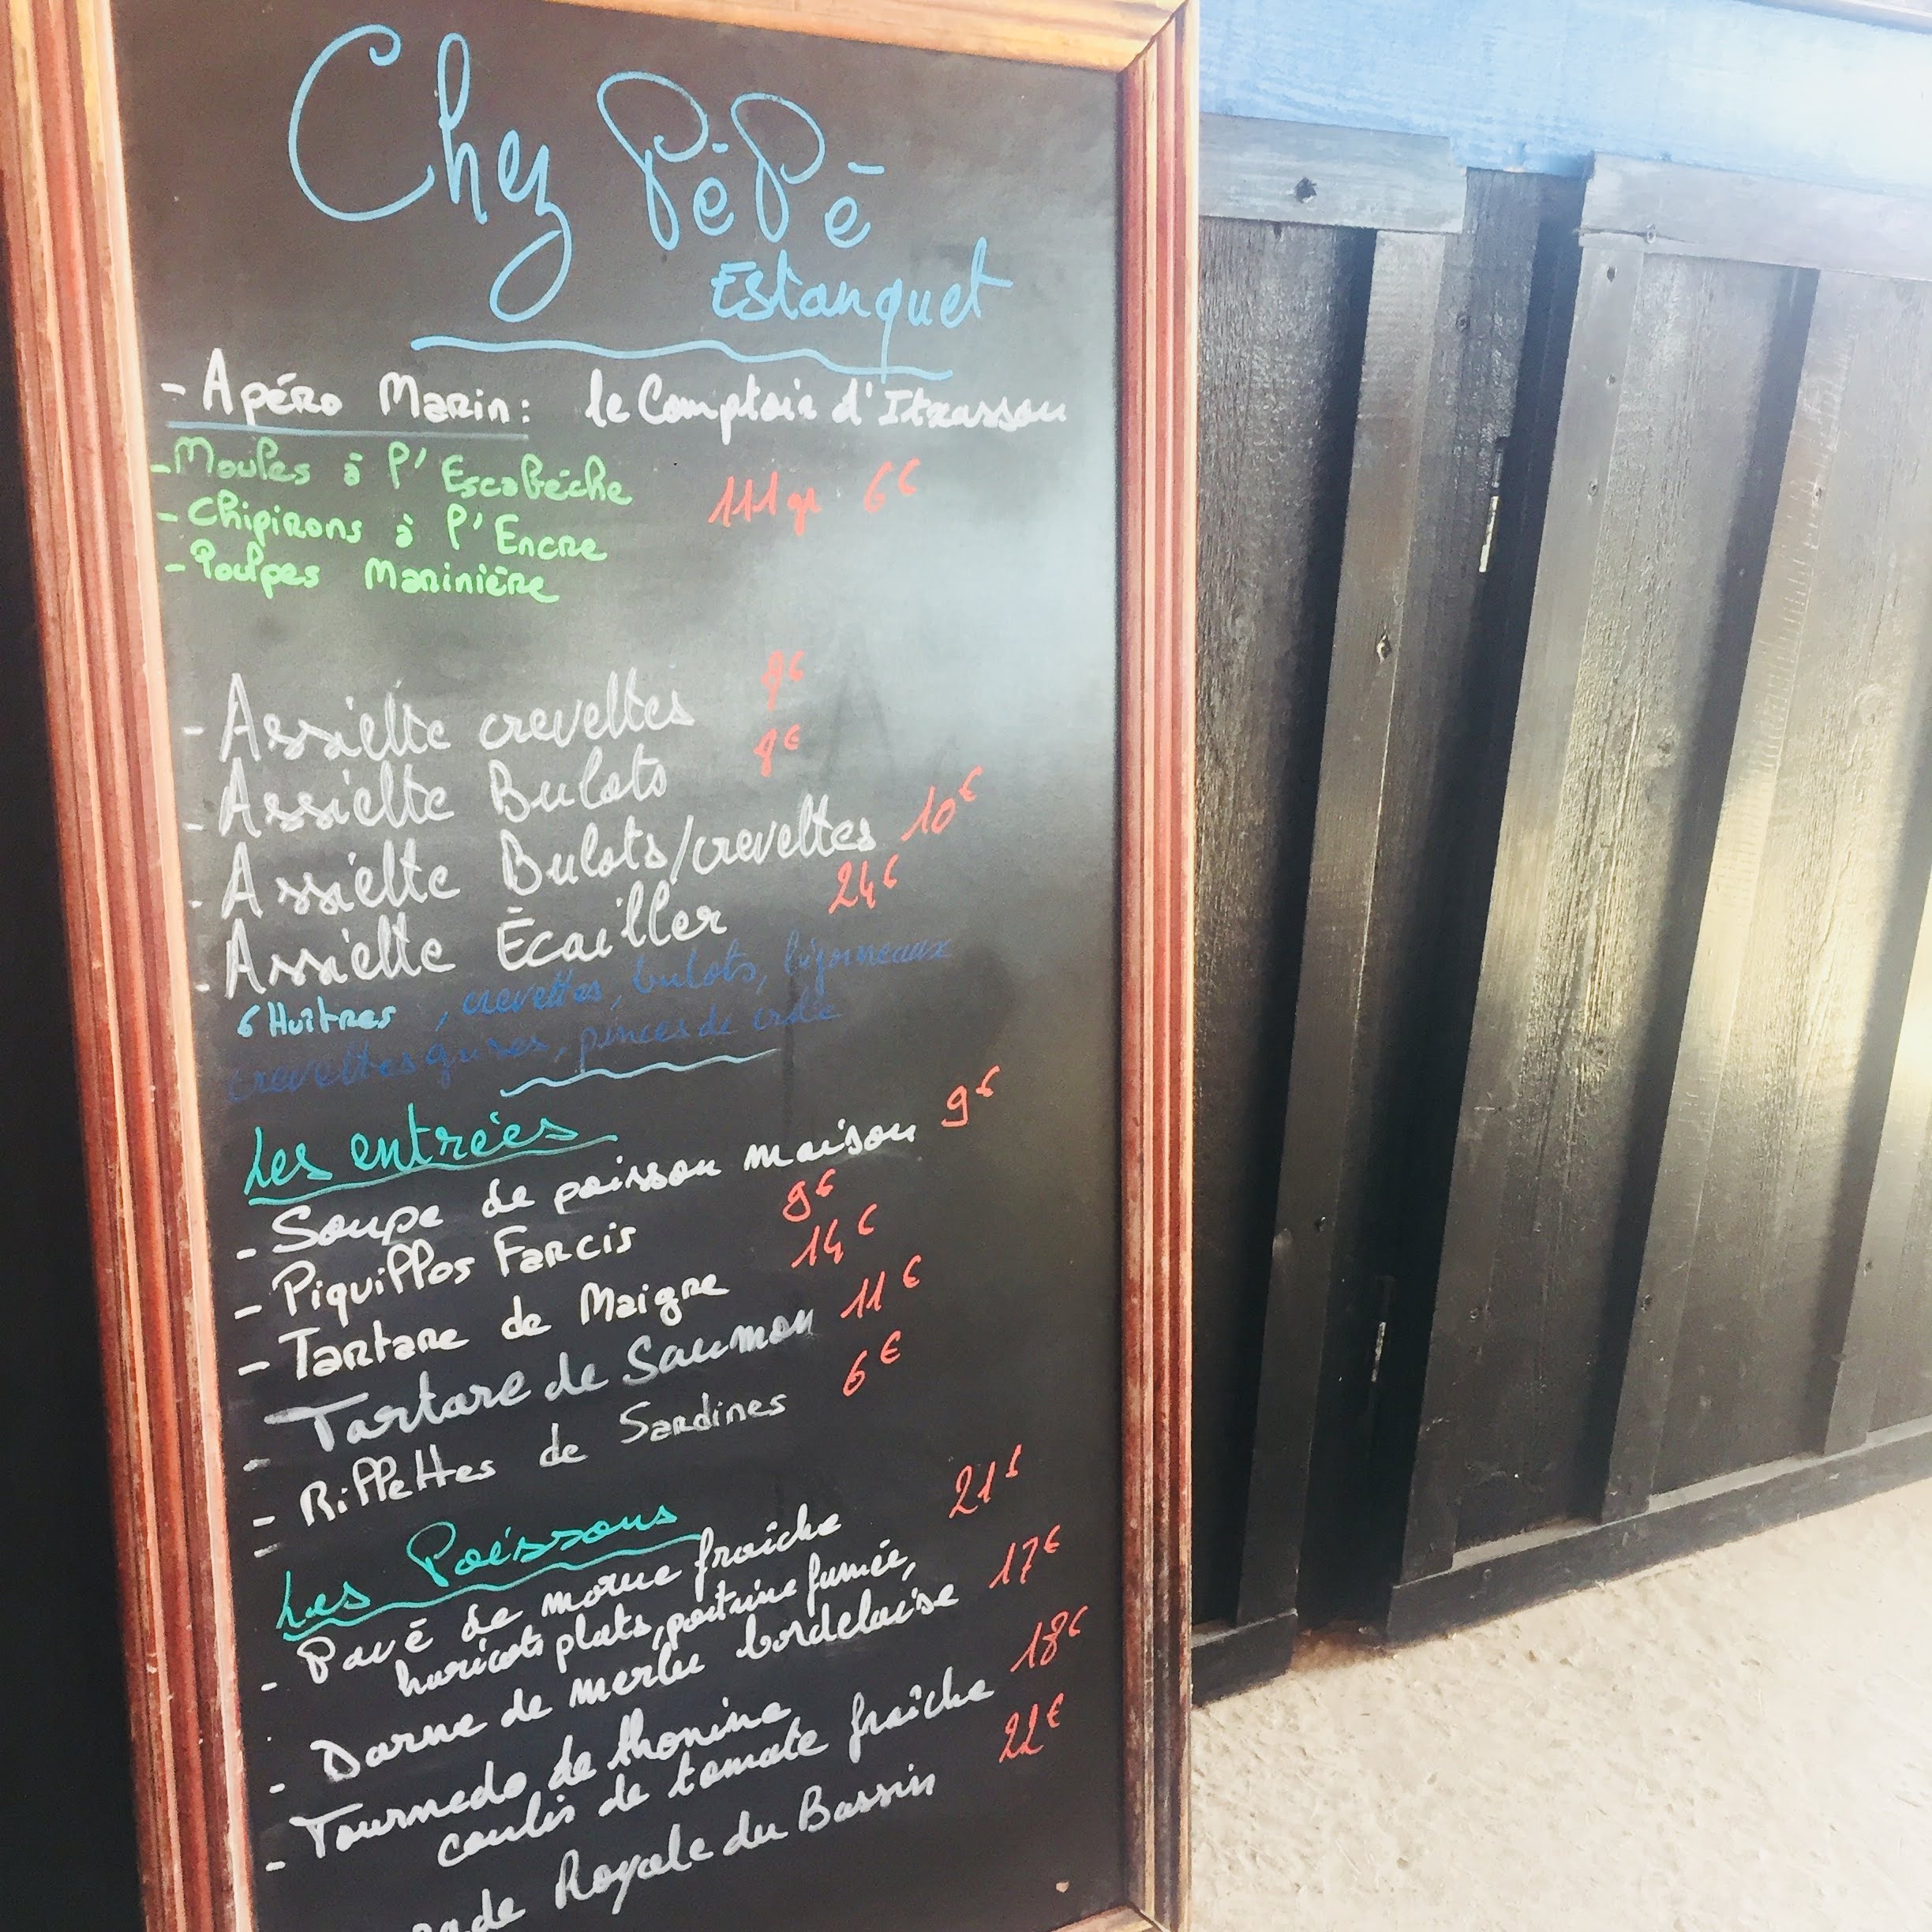 Chez PéPé
Estanquet
- Apéro Marin: le Comptoir d'Itxassou
- Moules à l'Escabèche 111gr 6€
- Chipirons à l'Encre
- Poulpes Marinière
- Assiette crevettes 8€
- Assiette Bulots 8€
- Assiette Bulots/crevettes 10€
- Assiette Écailler 24€
6 Huîtres, crevettes, bulots, bigorneaux
crevettes grises, pinces de crabe
Les entrées
- Soupe de poisson maison 9€
- Piquillos Farcis 9€
- Tartare de Maigre 14€
- Tartare de Saumon 11€
- Rillettes de Sardines 6€
-
Les Poissons
- Pavé de morue fraîche 21€
haricots plats, poitrine fumée,
- Darne de merlu bordelaise 17€
- Tournedo de thonine
coulis de tomate fraîche 18€
Royale du Bassin 22€